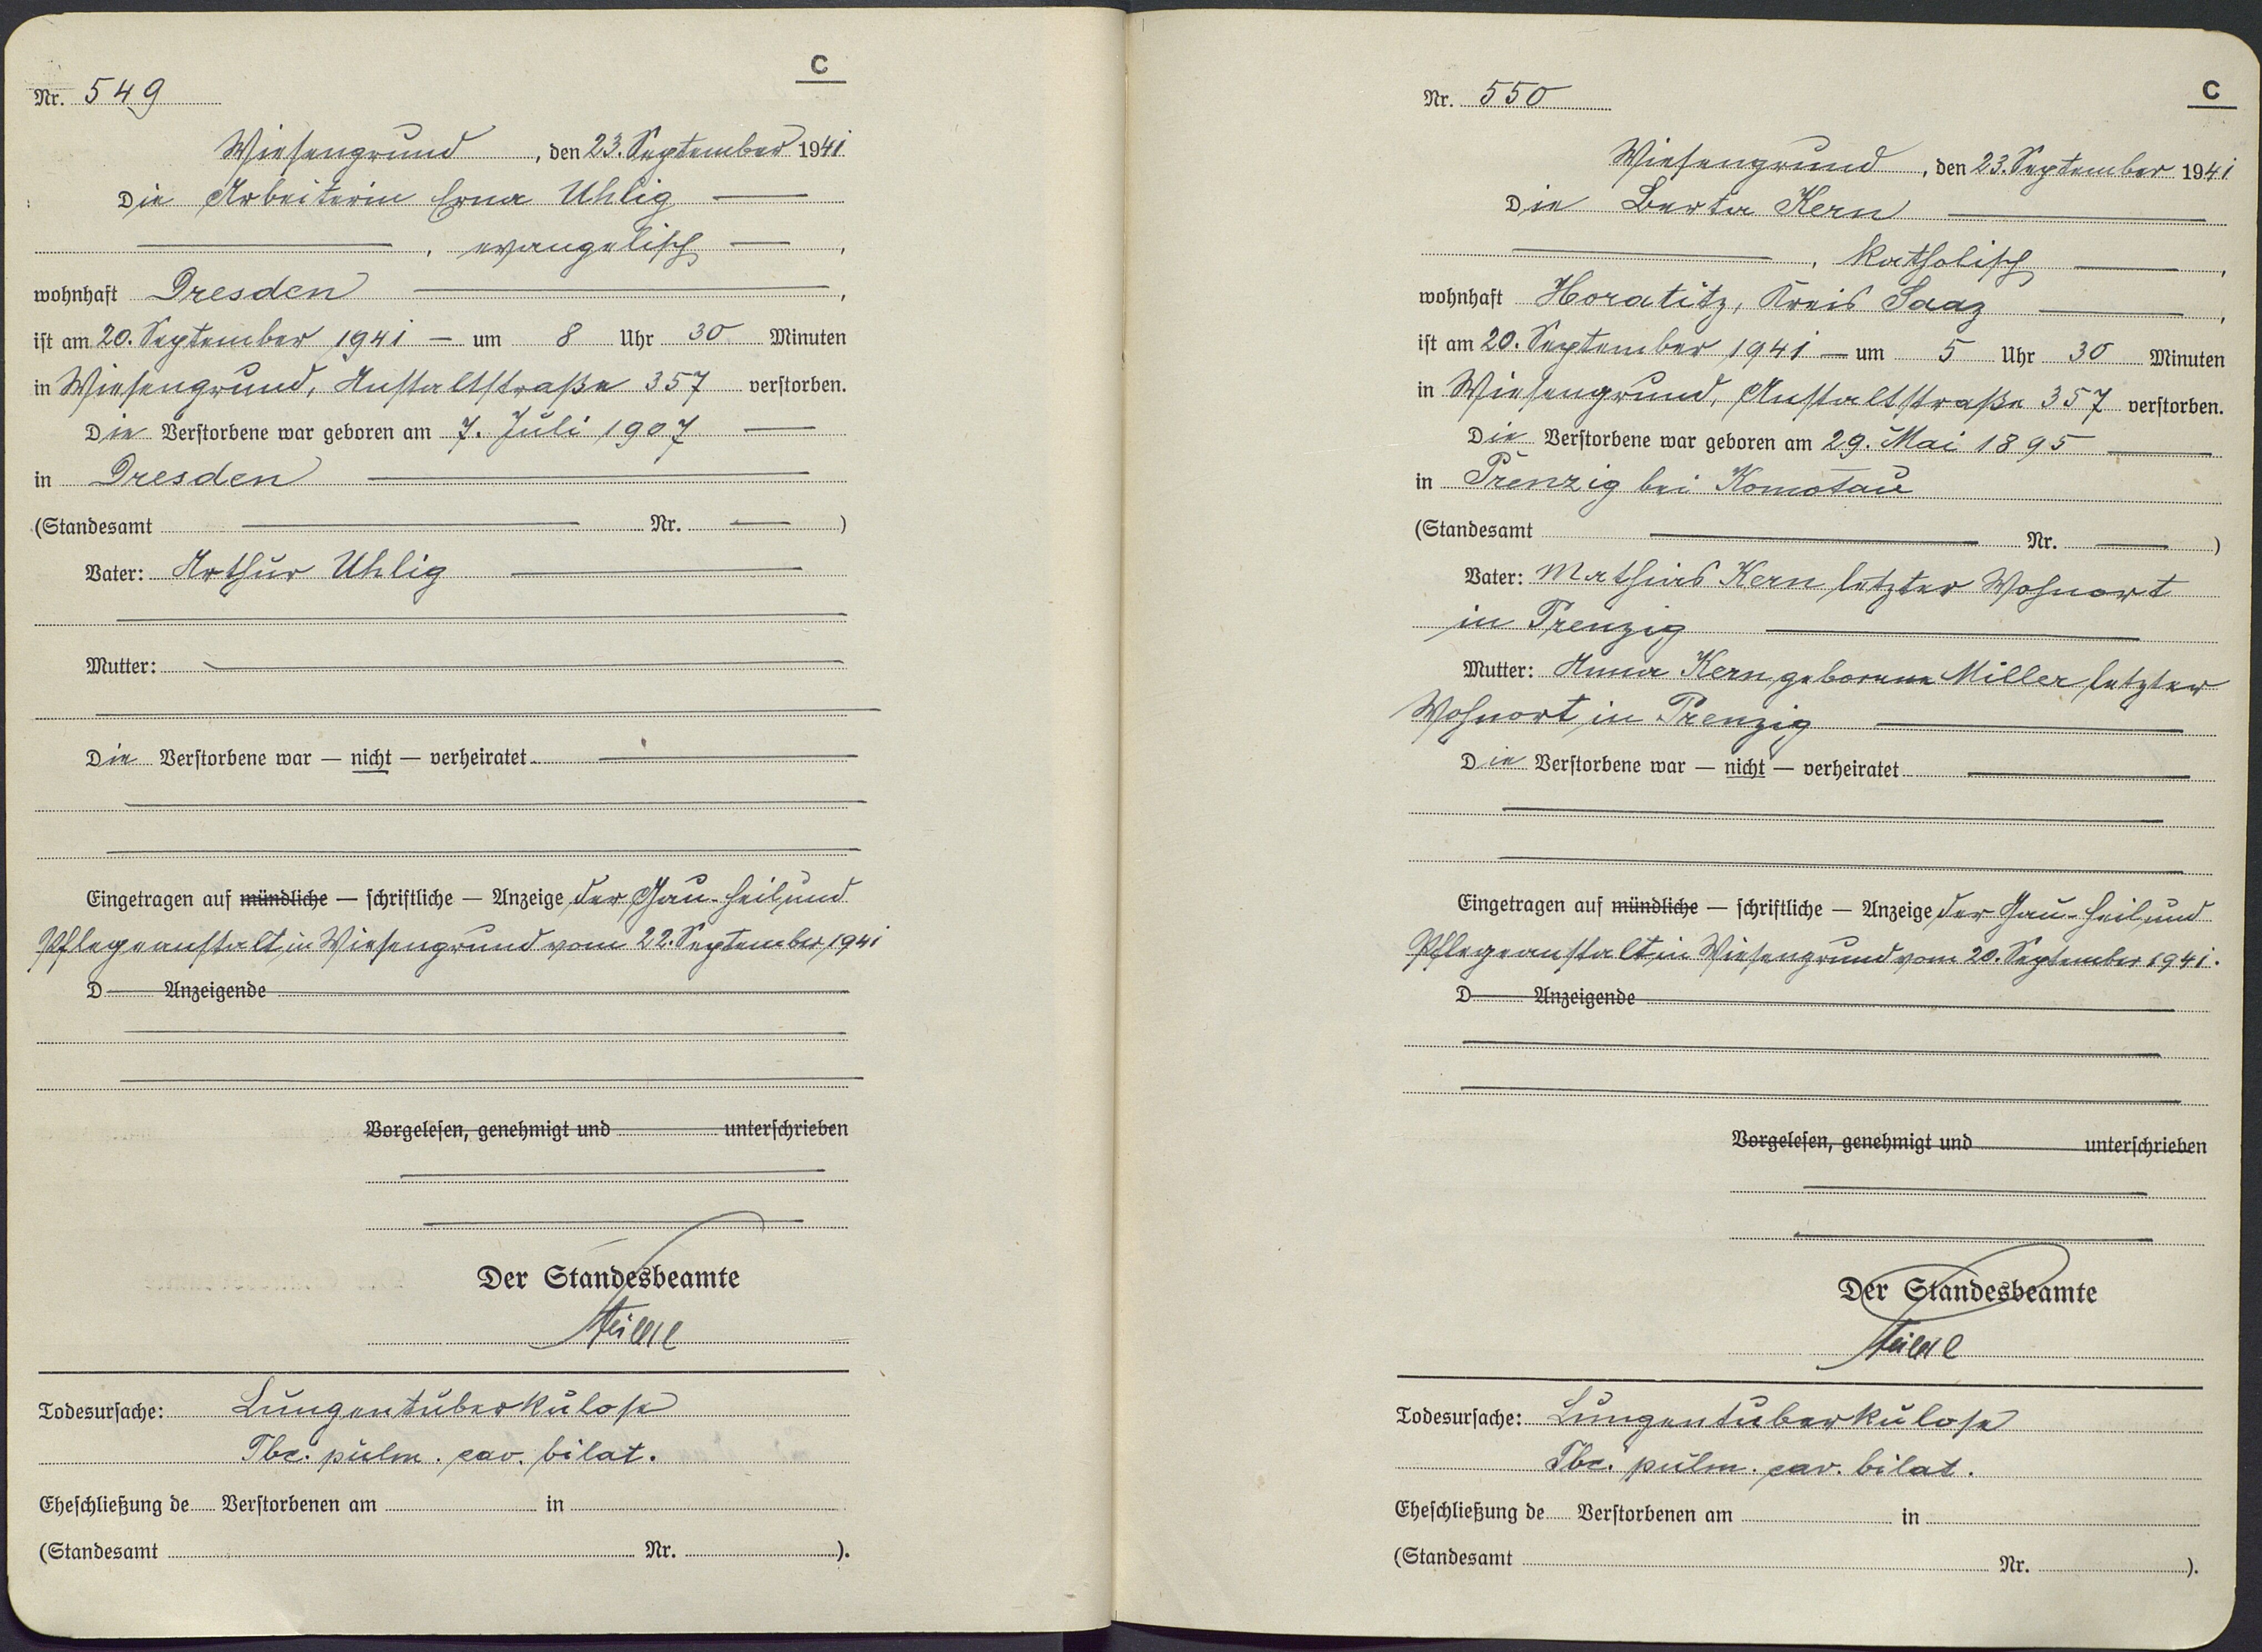 C
Nr. 549
Wiesengrund, den 23. September 1941
Die Arbeiterin Erna Uhlig
, evangelisch,
wohnhaft Dresden,
ist am 20. September 1941 — um 8 Uhr 30 Minuten
in Wiesengrund, Anstaltstraße 357 verstorben.
Die Verstorbene war geboren am 7. Juli 1907
in Dresden
(Standesamt — Nr. — )
Vater: Arthur Uhlig
Mutter:
Die Verstorbene war — nicht — verheiratet
Eingetragen auf mündliche — schriftliche — Anzeige der Gau-Heil und
Pflegeanstalt in Wiesengrund vom 22. September 1941
D Anzeigende
Vorgelesen, genehmigt und unterschrieben
Der Standesbeamte
Todesursache: Lungentuberkulose
Tbc. pulm. cav. bilat.
Eheschließung de Verstorbenen am in
(Standesamt Nr. ).
C
Nr. 550
Wiesengrund, den 23. September 1941
Die Berta Kern
, katholisch,
wohnhaft Horatitz, Kreis Saaz,
ist am 20. September 1941 — um 5 Uhr 30 Minuten
in Wiesengrund, Anstaltstraße 357 verstorben.
Die Verstorbene war geboren am 29. Mai 1895
in Prenzig bei Komotau
(Standesamt — Nr. — )
Vater: Mathias Kern letzter Wohnort
in Prenzig
Mutter: Anna Kern geborene Miller letzter
Wohnort in Prenzig
Die Verstorbene war — nicht — verheiratet
Eingetragen auf mündliche — schriftliche — Anzeige der Gau-Heil und
Pflegeanstalt in Wiesengrund vom 20. September 1941.
D Anzeigende
Vorgelesen, genehmigt und unterschrieben
Der Standesbeamte
Todesursache: Lungentuberkulose
Tbc. pulm. cav. bilat.
Eheschließung de Verstorbenen am in
(Standesamt Nr. ).